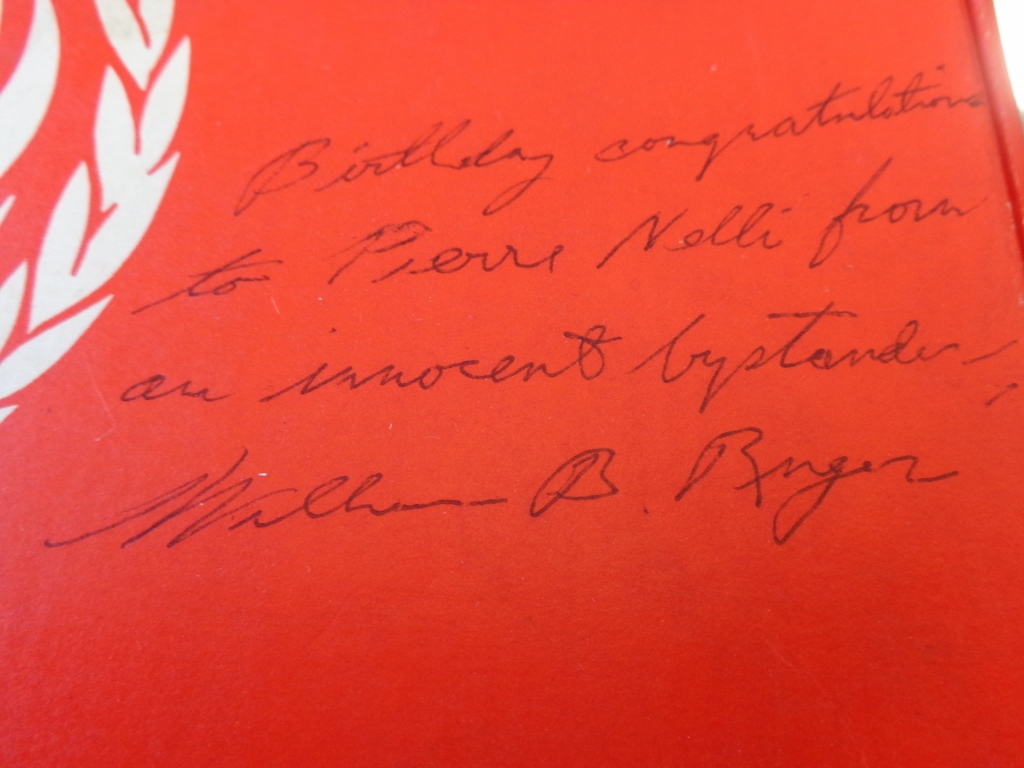 Birthday congratulations
to Pierre Nelli from
an innocent bystander,
William B. Ruger